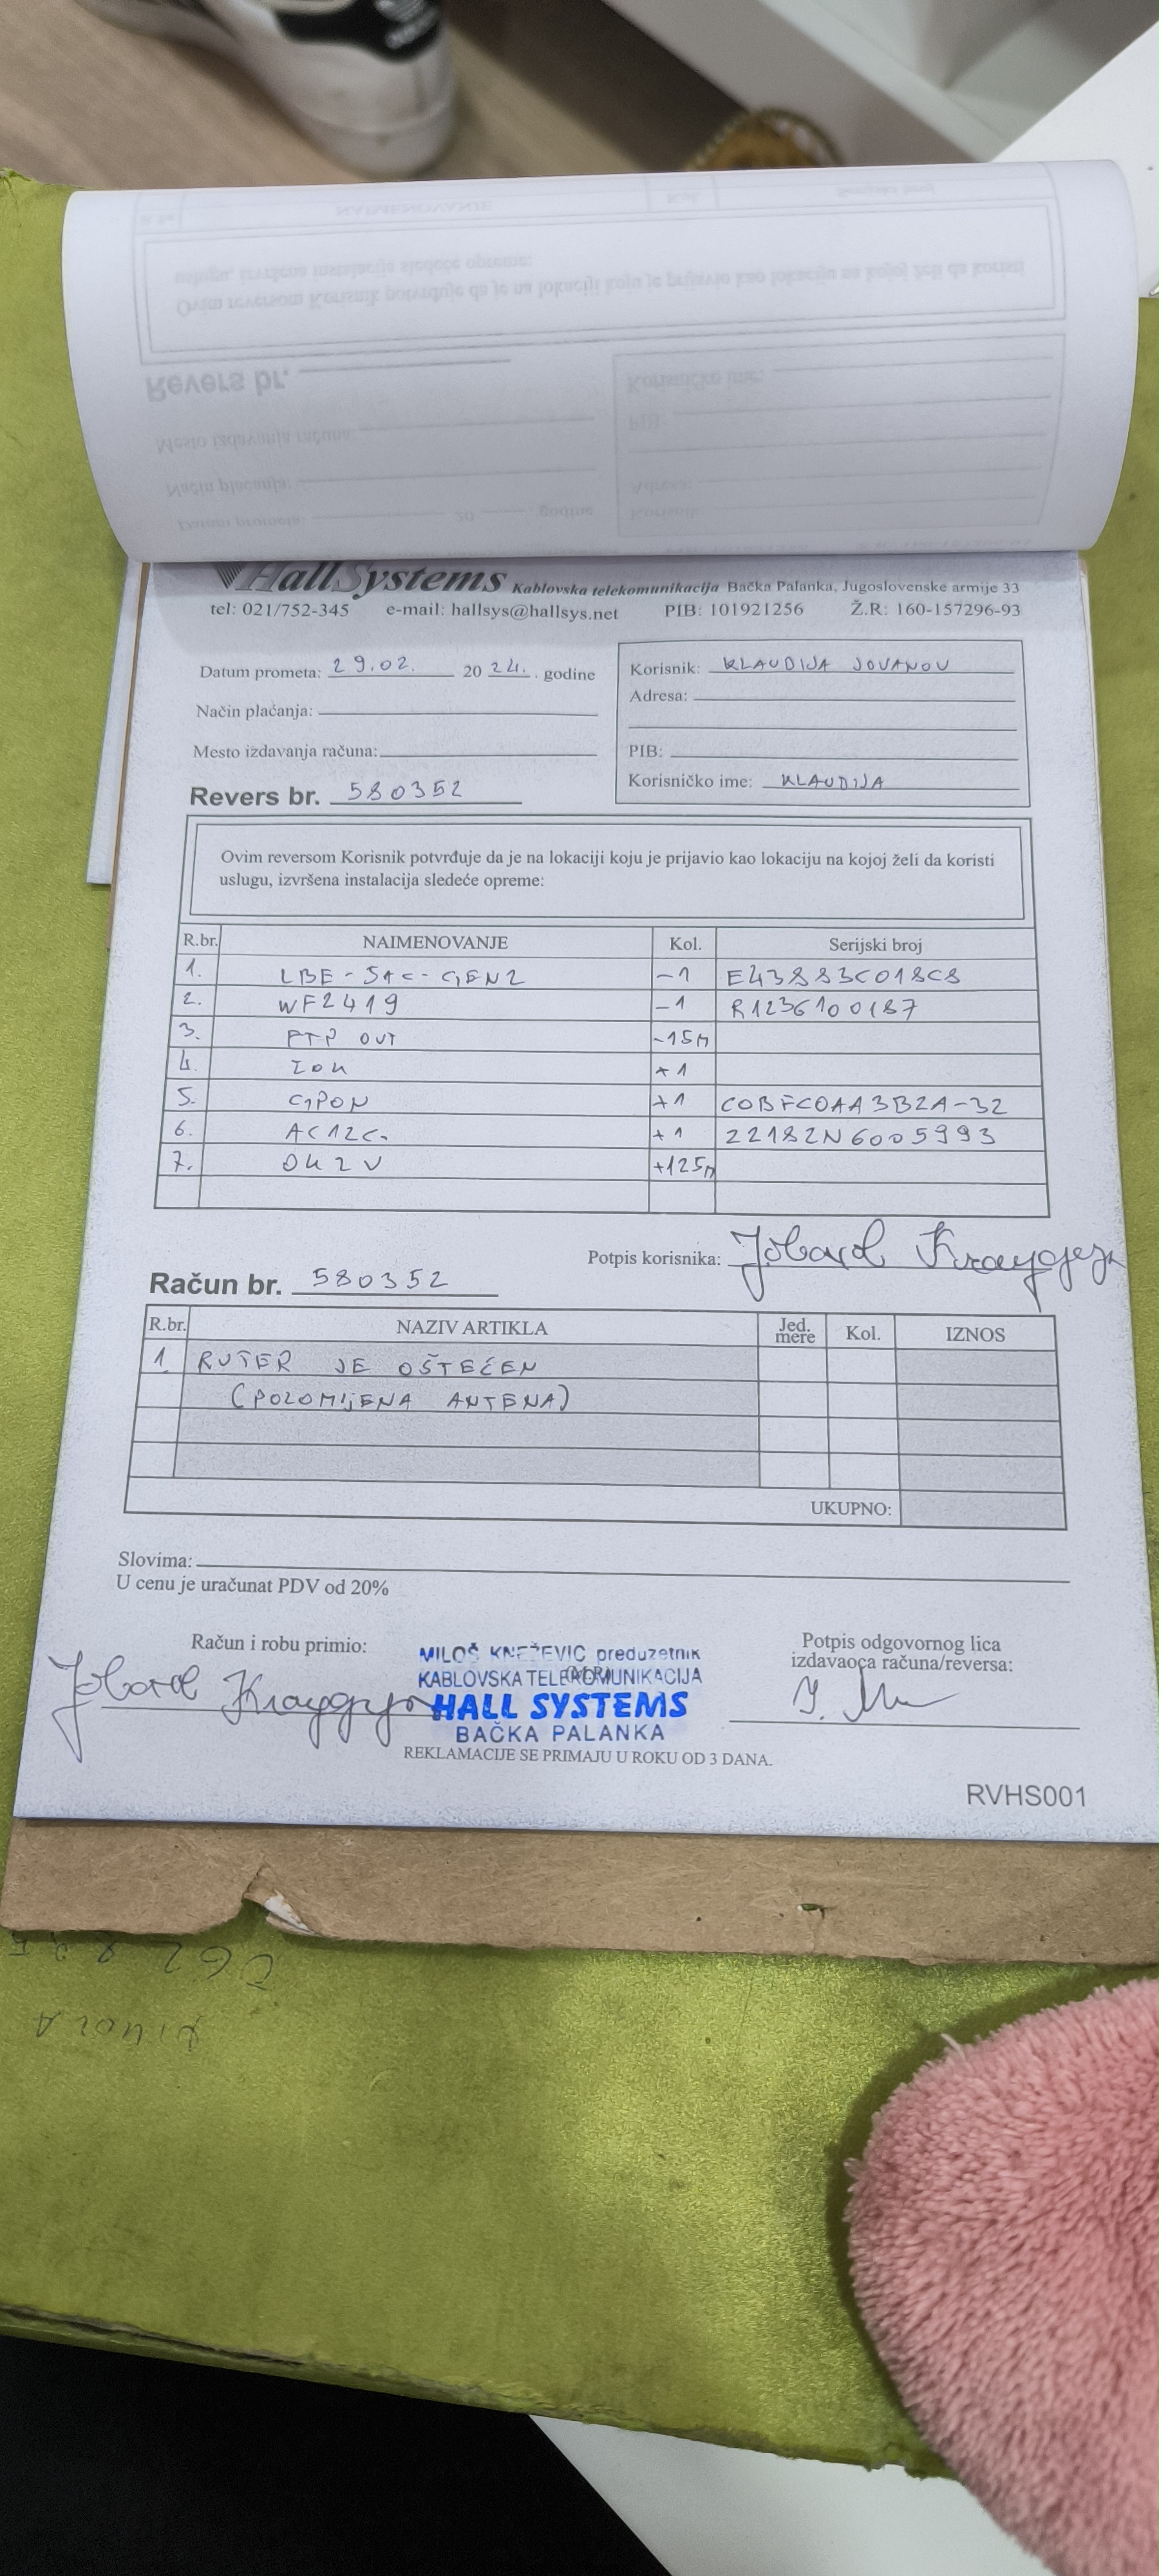 HallSystems Kablovska telekomunikacija Bačka Palanka, Jugoslovenske armije 33
tel: 021/752-345 e-mail: hallsys@hallsys.net PIB: 101921256 Ž.R: 160-157296-93
Datum prometa: 29.02. 20 24. . godine
Način plaćanja:
Mesto izdavanja računa:
Revers br. 580352
Korisnik: KLAUDIJA JOVANOV
Adresa:
PIB:
Korisničko ime: KLAUDIJA
Ovim reversom Korisnik potvrđuje da je na lokaciji koju je prijavio kao lokaciju na kojoj želi da koristi
uslugu, izvršena instalacija sledeće opreme:
R.br. NAIMENOVANJE Kol. Serijski broj
1. LBE-5AC-GEN2 -1 E43883C018C8
2. WF2419 -1 R1236100187
3. FTP OUT -15M
4. ZOK +1
5. GPON +1 C0BFC0AA3B2A-32
6. AC12C. +1 22182N6005993
7. OK2V +125M
Potpis korisnika:
Račun br. 580352
R.br. NAZIV ARTIKLA Jed. mere Kol. IZNOS
1 RUTER JE OŠTEĆEN
(POLOMIJENA ANTENA)
UKUPNO:
Slovima:
U cenu je uračunat PDV od 20%
Račun i robu primio:
MILOŠ KNEŽEVIC preduzetnik
KABLOVSKA TELEKOMUNIKACIJA
HALL SYSTEMS
BAČKA PALANKA
Potpis odgovornog lica
izdavaoca računa/reversa:
REKLAMACIJE SE PRIMAJU U ROKU OD 3 DANA.
RVHS001